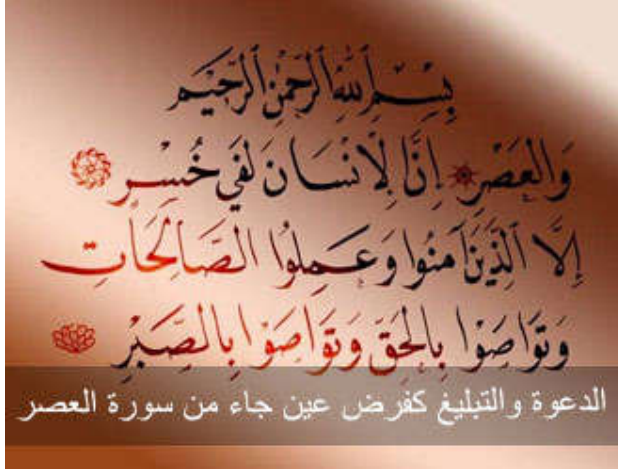 بِسْمِ اللَّهِ الرَّحْمَٰنِ الرَّحِيمِ
وَالْعَصْرِ إِنَّ الْإِنْسَانَ لَفِي خُسْرٍ
إِلَّا الَّذِينَ آمَنُوا وَعَمِلُوا الصَّالِحَاتِ
وَتَوَاصَوْا بِالْحَقِّ وَتَوَاصَوْا بِالصَّبْرِ
الدعوة والتبليغ كفرض عين جاء من سورة العصر